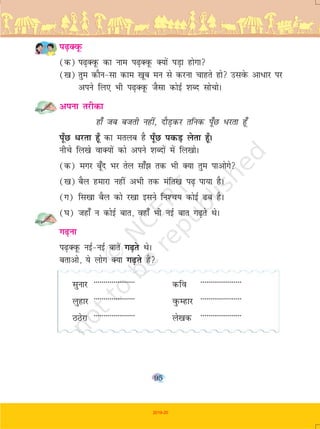 पढ़क्कू
(क) पढ़क्कू का नाम पढ़क्कू क्यों पड़ा होगा?
(ख) तुम कौन-सा काम खूब मन से करना चाहते हो? उसके आधार पर
अपने लिए भी पढ़क्कू जैसा कोई शब्द सोचो।
अपना तरीका
हाँ जब बजती नहीं, दौड़कर तनिक पूँछ धरता हूँ
पूँछ धरता हूँ का मतलब है पूँछ पकड़ लेता हूँ।
नीचे लिखे वाक्यों को अपने शब्दों में लिखो।
(क) मगर बूँद भर तेल साँझ तक भी क्या तुम पाओगे?
(ख) बैल हमारा नहीं अभी तक मंतिख पढ़ पाया है।
(ग) सिखा बैल को रखा इसने निश्चय कोई ढब है।
(घ) जहाँ न कोई बात, वहाँ भी नई बात गढ़ते थे।
गढ़ना
पढ़क्कू नई-नई बातें गढ़ते थे।
बताओ, ये लोग क्या गढ़ते हैं?
सुनार ..................... कवि .....................
लुहार ..................... कुम्हार .....................
ठठेरा ..................... लेखक .....................
95
2019-20
not to be republished